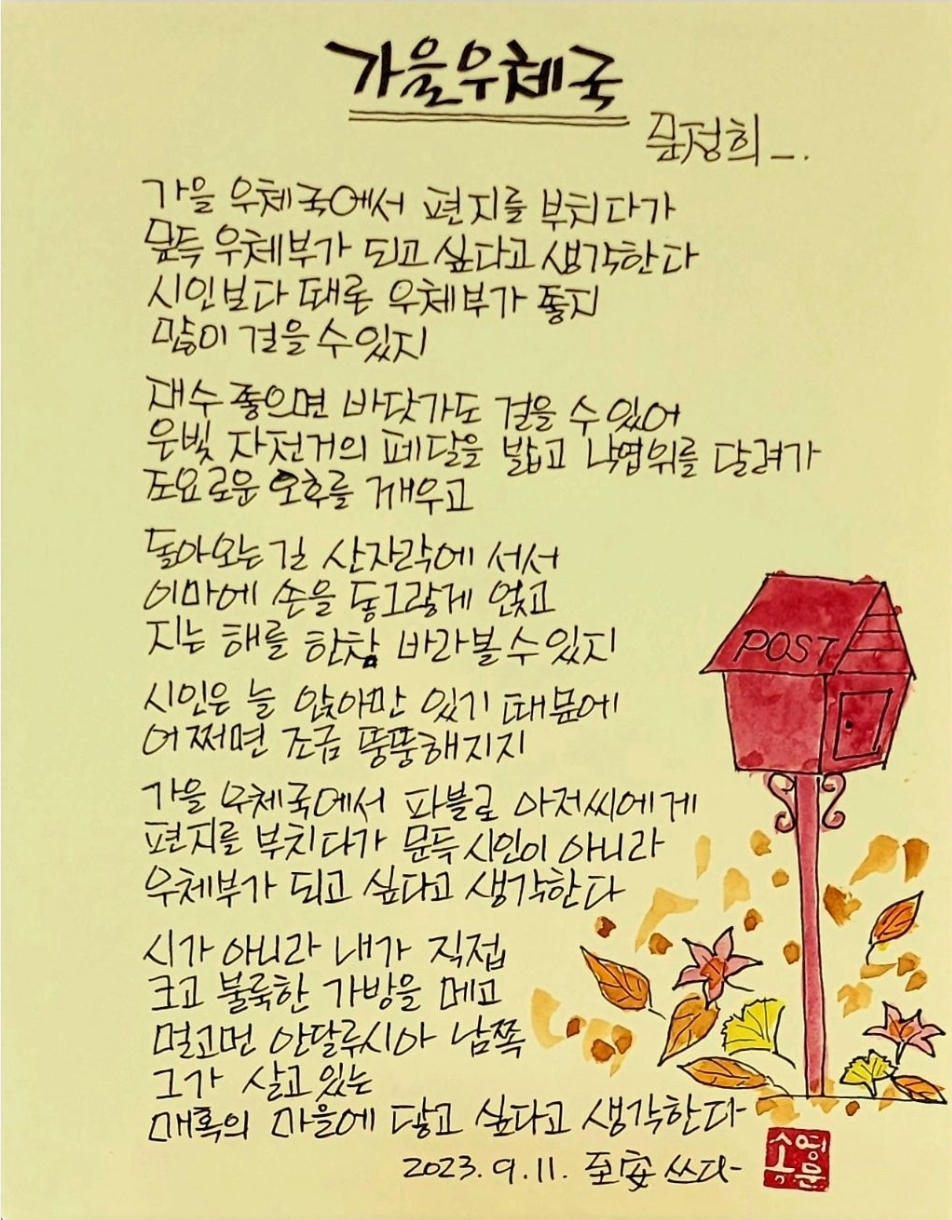 가을우체국
문정희-.
가을 우체국에서 편지를 부치다가
문득 우체부가 되고 싶다고 생각한다
시인보다 때론 우체부가 좋지
많이 걸을 수 있지
재수 좋으면 바닷가도 걸을 수 있어
은빛 자전거의 페달을 밟고 낙엽위를 달려가
조요로운 오후를 깨우고
돌아오는 길 산자락에 서서
이마에 손을 동그랗게 얹고
지는 해를 한참 바라볼 수 있지
시인은 늘 앉아만 있기 때문에
어쩌면 조금 뚱뚱해지지
가을 우체국에서 파블로 아저씨에게
편지를 부치다가 문득 시인이 아니라
우체부가 되고 싶다고 생각한다
시가 아니라 내가 직접
크고 불룩한 가방을 메고
멀고먼 안달루시아 남쪽
그가 살고 있는
매혹의 마을에 닿고 싶다고 생각한다
2023.9.11. 至安 쓰다-
POST
송영문